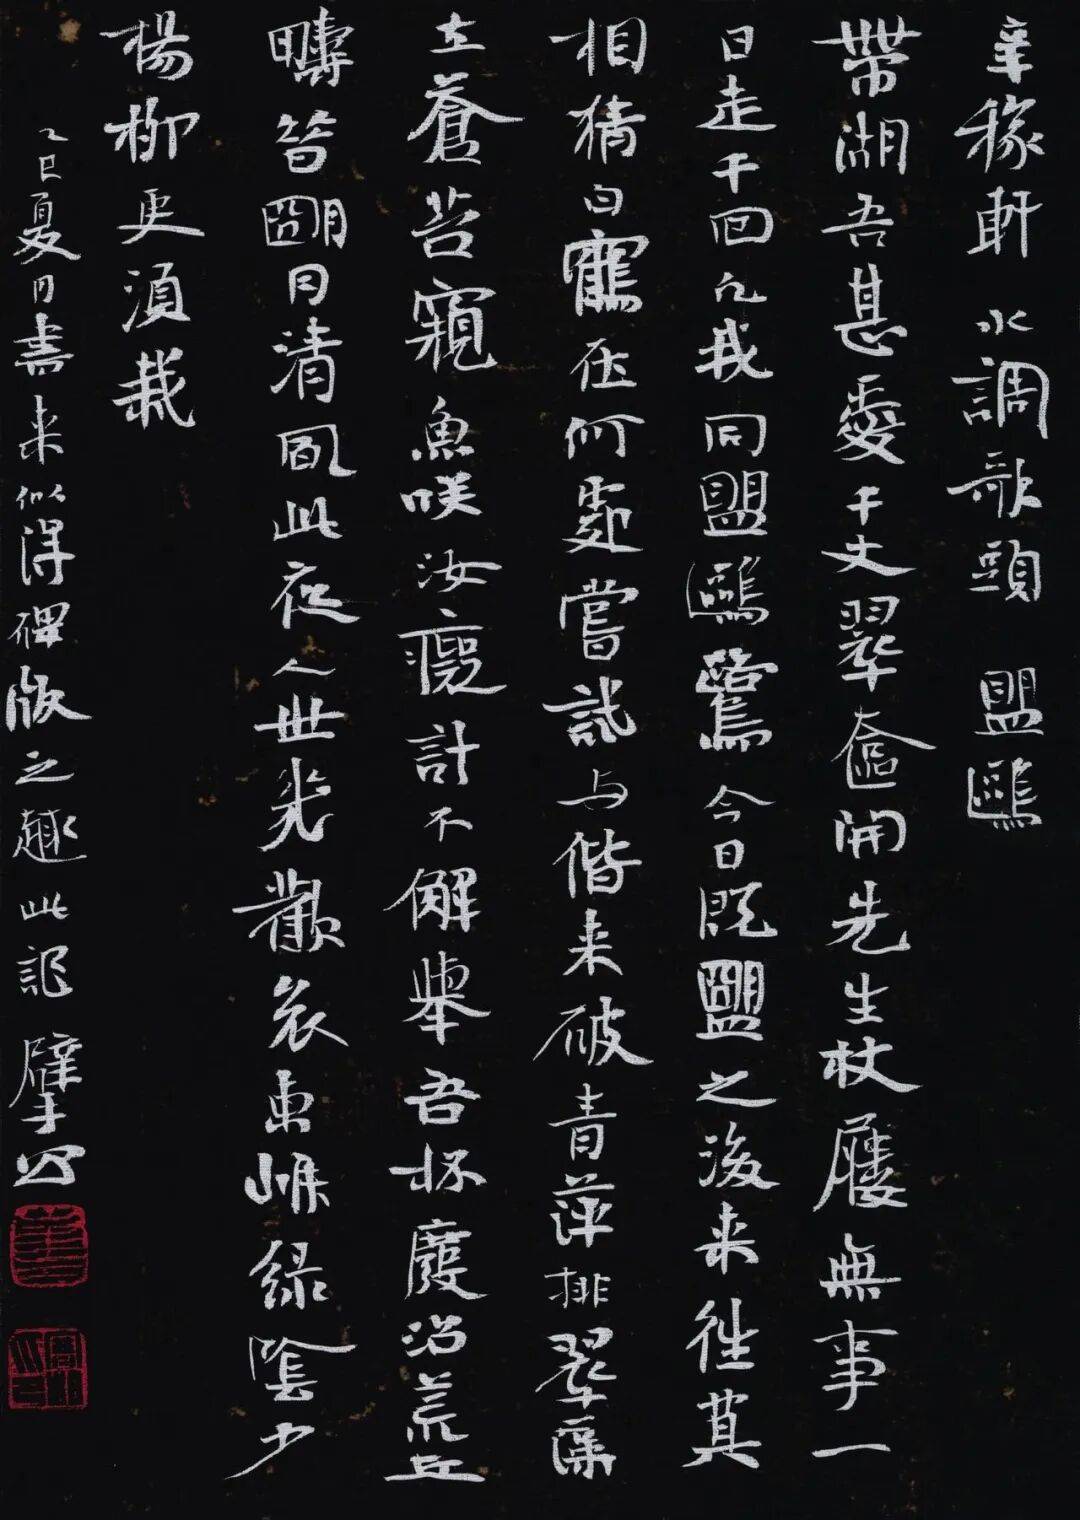 辛稼軒 水調歌頭 盟鷗
帶湖吾甚愛千丈翠奩開先生杖屨無事一
日走千回凡我同盟鷗鷺今日既盟之後来往莫
相猜白鶴在何處嘗試与偕来破青萍排翠藻
立蒼苔窺魚咲汝癡計不解舉吾杯廢沼荒丘
疇昔朙月清風此夜人世幾歡哀東岸綠陰少
楊柳更須栽
乙巳夏月書来似得碑版之趣此記 擘公